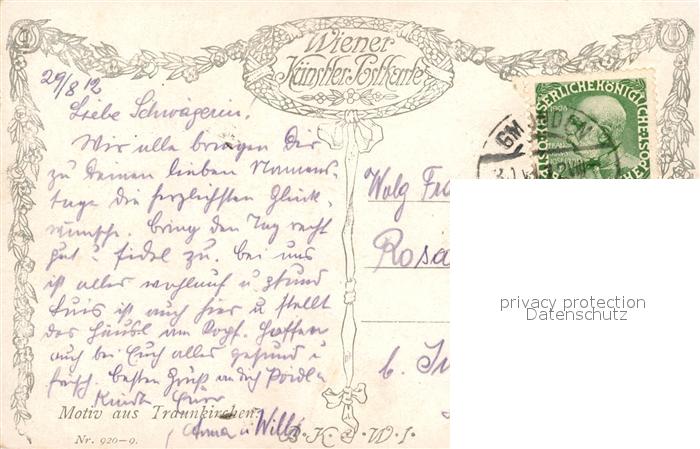 Wiener
Künstler-Postkarte
29/8 12
Liebe Schwägerin,
Wir alle bringen Dir
zu Deinem lieben Namens-
tage die herzlichsten Glück-
wünsche. bring den Tag recht
gut u fidel zu. bei uns
ist alles wohlauf u gsund
Luis ist auch hier u stellt
das Häusl am Kopf. Hoffen
auch bei Euch alles gesund u
frisch. besten Gruß an dich
Anna u Willi
Motiv aus Traunkirchen.
Nr. 920-9.
B·K·W·I·
GMUNDEN
KAISERLICHE KÖNIGLICHE
Rosa
privacy protection
Datenschutz